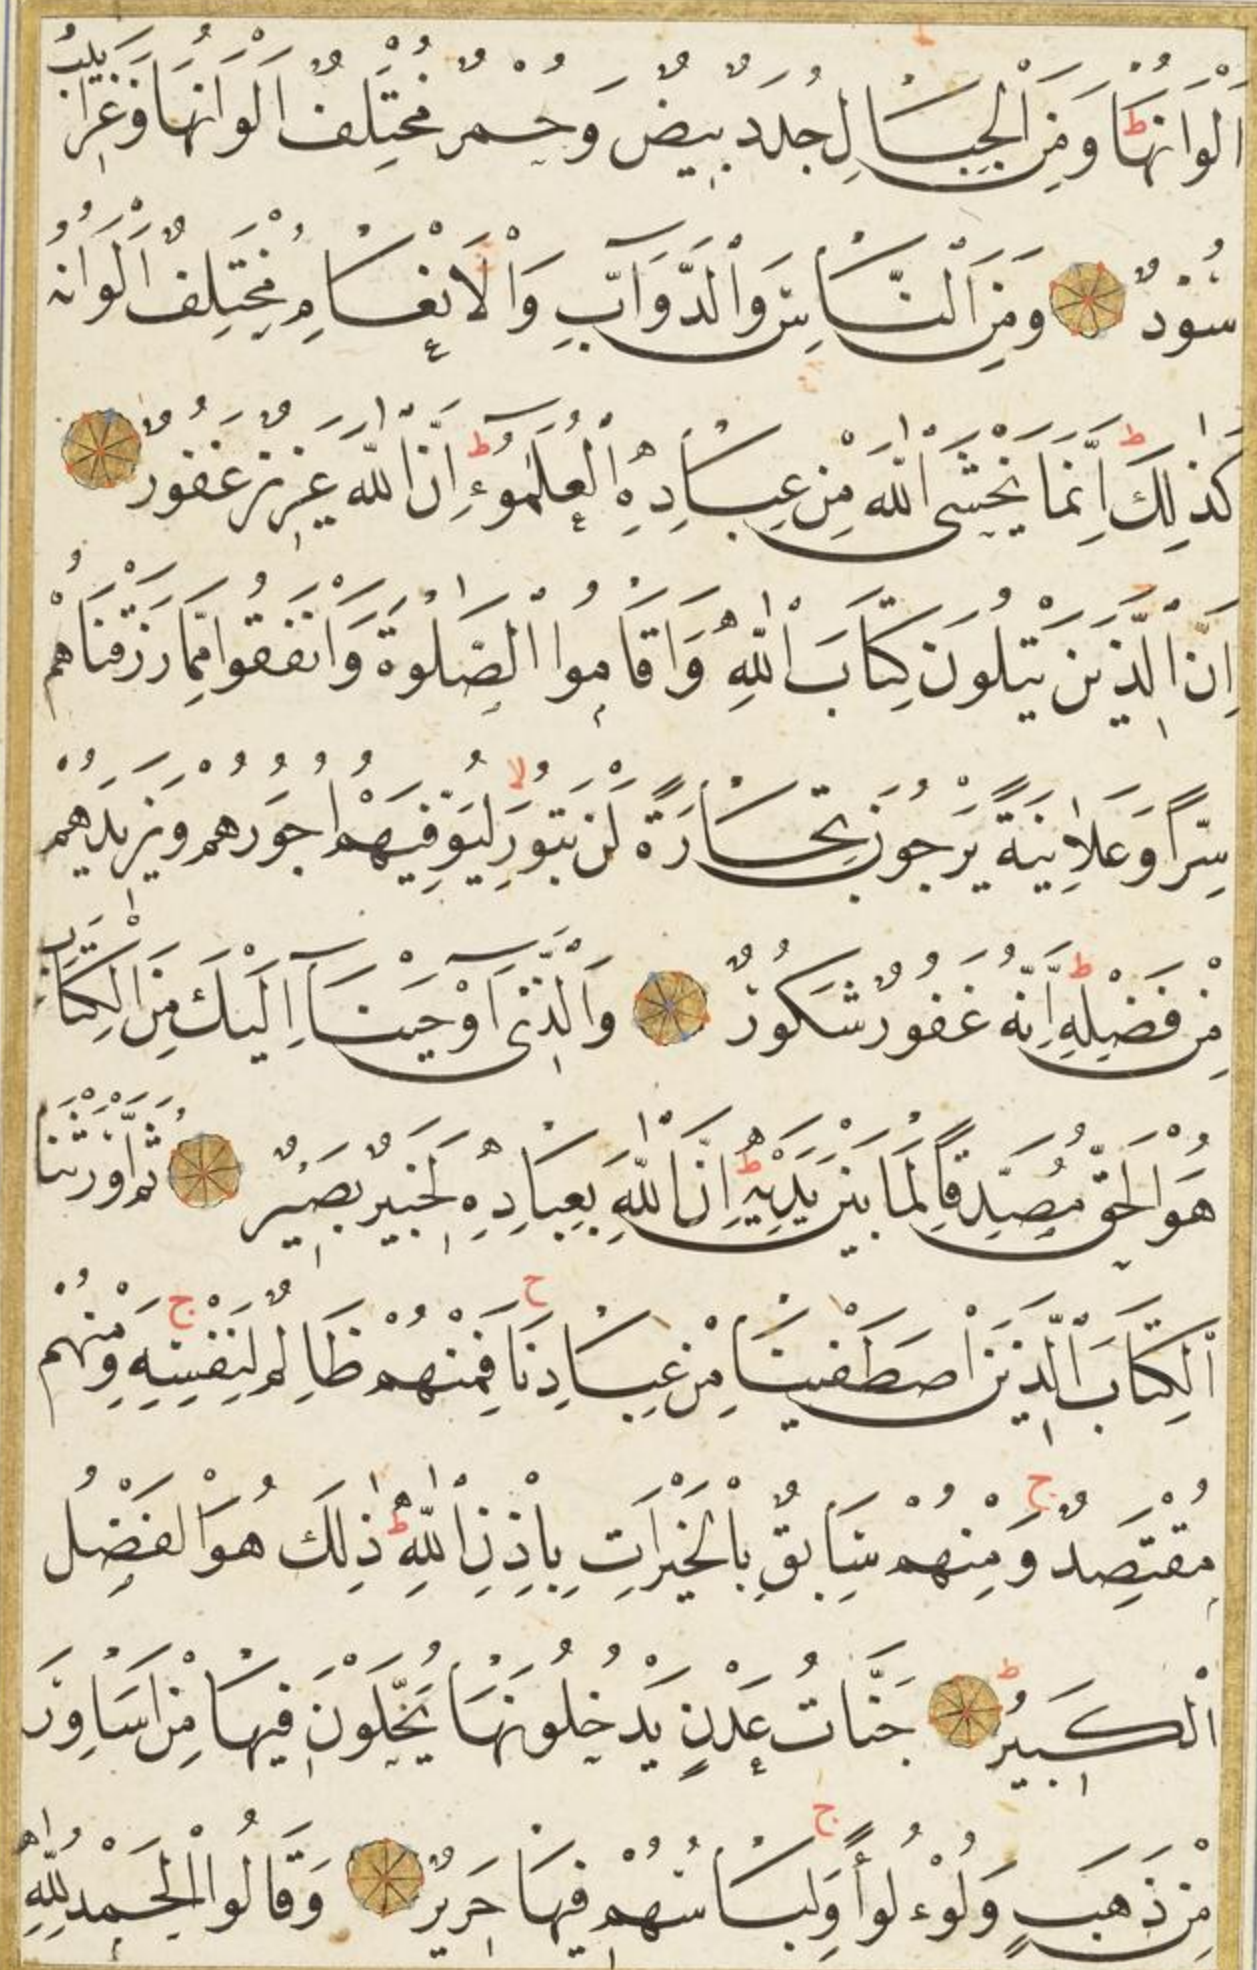 اَلْوَانُهَا ط وَمِنَ الْجِبَالِ جُدَدٌ بِيضٌ وَحُمْرٌ مُخْتَلِفٌ اَلْوَانُهَا وَغَرَابِيبُ
سُودٌ وَمِنَ النَّاسِ وَالدَّوَآبِّ وَالْاَنْعَامِ مُخْتَلِفٌ اَلْوَانُهُ
كَذٰلِكَ ط اِنَّمَا يَخْشَى اللّٰهَ مِنْ عِبَادِهِ الْعُلَمٰٓوءُ ط اِنَّ اللّٰهَ عَزِيزٌ غَفُورٌ
اِنَّ الَّذِينَ يَتْلُونَ كِتَابَ اللّٰهِ وَاَقَامُوا الصَّلٰوةَ وَاَنْفَقُوا مِمَّا رَزَقْنَاهُمْ
سِرًّا وَعَلَانِيَةً يَرْجُونَ تِجَارَةً لَنْ تَبُورَ لا لِيُوَفِّيَهُمْ اُجُورَهُمْ وَيَزِيدَهُمْ
مِنْ فَضْلِهِ ط اِنَّهُ غَفُورٌ شَكُورٌ وَالَّذِى اَوْحَيْنَآ اِلَيْكَ مِنَ الْكِتَابِ
هُوَ الْحَقُّ مُصَدِّقًا لِمَا بَيْنَ يَدَيْهِ ط اِنَّ اللّٰهَ بِعِبَادِهِ لَخَبِيرٌ بَصِيرٌ ثُمَّ اَوْرَثْنَا
الْكِتَابَ الَّذِينَ اصْطَفَيْنَا مِنْ عِبَادِنَا ج فَمِنْهُمْ ظَالِمٌ لِنَفْسِهِ ج وَمِنْهُمْ
مُقْتَصِدٌ ج وَمِنْهُمْ سَابِقٌ بِالْخَيْرَاتِ بِاِذْنِ اللّٰهِ ط ذٰلِكَ هُوَ الْفَضْلُ
الْكَبِيرُ ط جَنَّاتُ عَدْنٍ يَدْخُلُونَهَا يُحَلَّوْنَ فِيهَا مِنْ اَسَاوِرَ
مِنْ ذَهَبٍ وَلُؤْلُؤًا ج وَلِبَاسُهُمْ فِيهَا حَرِيرٌ وَقَالُوا الْحَمْدُ لِلّٰهِ